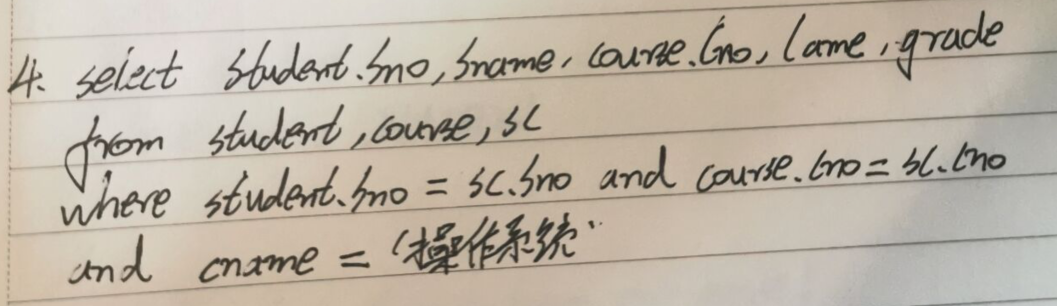 4. select student.Sno, Sname, course.Cno, Came, grade
from student, course, sc
where student.Sno = sc.Sno and course.Cno = sc.Cno
and cname = '操作系统'